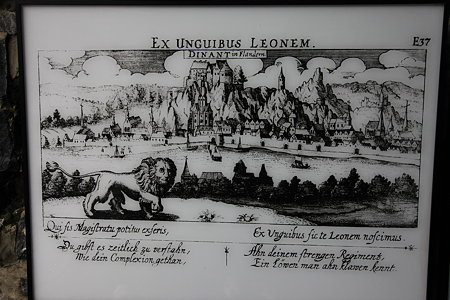 EX UNGUIBUS LEONEM.
E37
DINANT in Flandern
Qui sis Magistratu potitus exseris,
Ex Unguibus sic te Leonem noscimus.
Du giffst es zeitlich zu verstahn,
Wie dein Complexion gethan,
Ahn deinem strengen Regiment,
Ein Löwen man ahn klawen kennt.